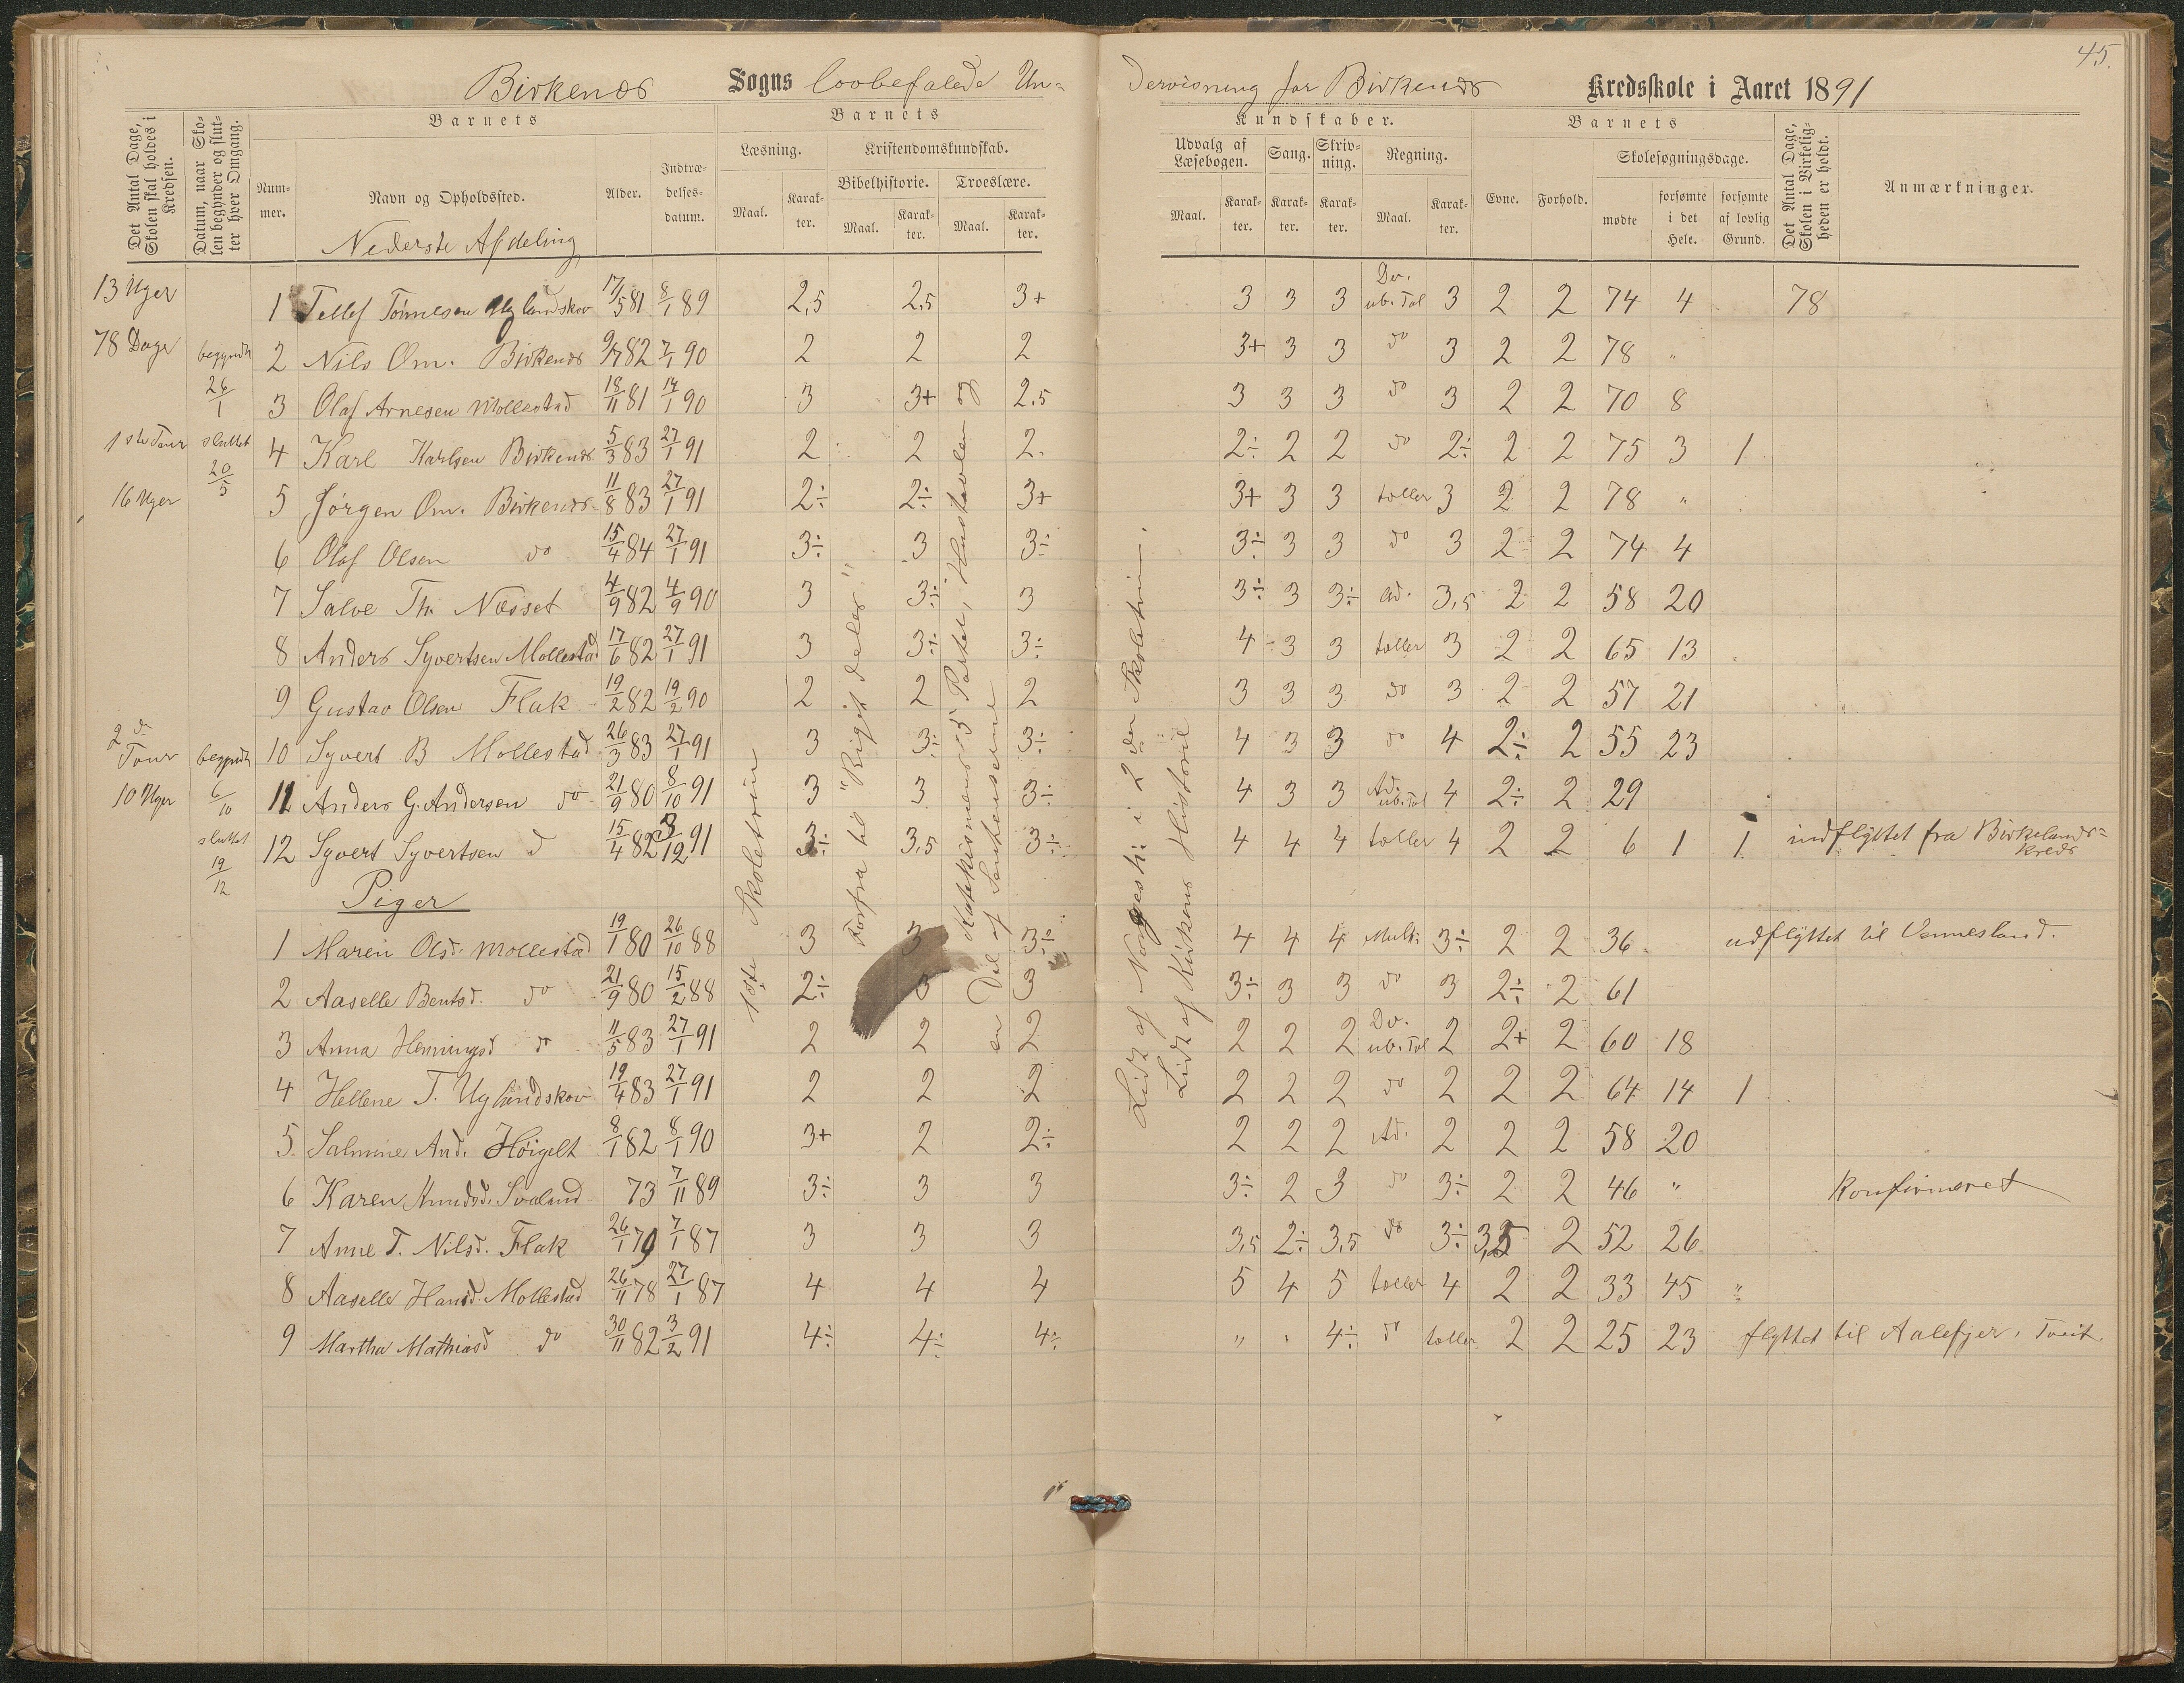 45.
Birkenæs Sogns lovbefalede Un-
dervisning for Birkenæs Kredsskole i Aaret 1891
Det Antal Dage, Skolen skal holdes i Kredsen.
Datum, naar Skolen begynder og slutter hver Omgang.
Barnets
Nummer.
Navn og Opholdssted.
Alder.
Indtrædelsesdatum.
Barnets
Læsning.
Maal.
Karakter.
Kristendomskundskab.
Bibelhistorie.
Maal.
Karakter.
Troeslære.
Maal.
Karakter.
Kundskaber.
Udvalg af Læsebogen.
Maal.
Karakter.
Sang.
Karakter.
Skrivning.
Karakter.
Regning.
Maal.
Karakter.
Barnets
Evne.
Forhold.
Skolesøgningsdage.
mødte
forsømte i det Hele.
forsømte af lovlig Grund.
Det Antal Dage, Skolen i Virkeligheden er holdt.
Anmærkninger.
Nederste Afdeling
13 Uger
78 Dage
begyndt 26/1
1ste Tour
sluttet 20/5
16 Uger
2d Tour
begyndt 6/10
10 Uger
sluttet 19/12
1ste Skoletrin
Forfra til "Riget deles"
Katekismens 5 Parter, Hustavlen og
en Del af Sentenserne
Lidt af Norgeshi: i 2den Skoletrin.
Lidt af Kirkens Historie
1 Tellef Tønnesen Uglandskov 17/5 81 8/1 89 2,5 2,5 3+ 3 3 3 Dv. ub. Tal 3 2 2 74 4 78
2 Nils Om. Birkenæs 9/7 82 7/1 90 2 2 2 3+ 3 3 do 3 2 2 78 "
3 Olaf Arnesen Mollestad 18/11 81 14/1 90 3 3+ 2.5 3 3 3 do 3 2 2 70 8
4 Karl Karlsen Birkenæs 5/3 83 27/1 91 2 2 2. 2÷ 2 2 do 2÷ 2 2 75 3 1
5 Jørgen Om. Birkenæs 11/8 83 27/1 91 2÷ 2÷ 3+ 3+ 3 3 tæller 3 2 2 78 "
6 Olaf Olsen do 15/4 84 27/1 91 3÷ 3 3÷ 3÷ 3 3 do 3 2 2 74 4
7 Salve Th. Næsset 4/9 82 4/9 90 3 3÷ 3 3÷ 3 3÷ Ad. 3,5 2 2 58 20
8 Anders Syvertsen Mollestad 17/6 82 27/1 91 3 3÷ 3÷ 4 3 3 tæller 3 2 2 65 13
9 Gustav Olsen Flak 19/2 82 19/2 90 2 2 2 3 3 3 do 3 2 2 57 21
10 Syvert B Mollestad 26/3 83 27/1 91 3 3÷ 3÷ 4 3 3 do 4 2÷ 2 55 23
11 Anders G. Andersen do 21/9 80 8/10 91 3 3 3÷ 4 3 3 Ad. ub. Tal 4 2÷ 2 29
12 Syvert Syvertsen d 15/4 82 3/12 91 3÷ 3,5 3÷ 4 4 4 tæller 4 2 2 6 1 1 indflyttet fra Birkelands-
kreds
Piger
1 Maren Olsd. Mollestad 19/1 80 26/10 88 3 3 3÷ 4 4 4 Mult: 3÷ 2 2 36 udflyttet til Vennesland.
2 Aaselle Bentsd. do 21/9 80 15/2 88 2÷ 3 3 3÷ 3 3 do 3 2÷ 2 61
3 Anna Henningsd do 11/5 83 27/1 91 2 2 2 2 2 2 Dv. ub. Tal 2 2+ 2 60 18
4 Hellene T. Uglandskov 19/4 83 27/1 91 2 2 2 2 2 2 do 2 2 2 64 14 1
5. Salmine And. Høigilt 8/1 82 8/1 90 3+ 2 2÷ 2 2 2 Ad. 2 2 2 58 20
6 Karen Knudsd. Svaland 73 7/11 89 3÷ 3 3 3÷ 2 3 do 3÷ 2 2 46 " Konfirmeret
7 Anne T. Nilsd. Flak 26/1 79 7/1 87 3 3 3 3,5 2÷ 3,5 do 3÷ 3,5 2 52 26
8 Aaselle Hansd. Mollestad 26/11 78 27/1 87 4 4 4 5 4 5 tæller 4 2 2 33 45 "
9 Martha Mathiasd do 30/11 82 3/2 91 4÷ 4÷ 4÷ " " 4÷ do tæller 2 2 25 23 flyttet til Aalefjer, Tveit.